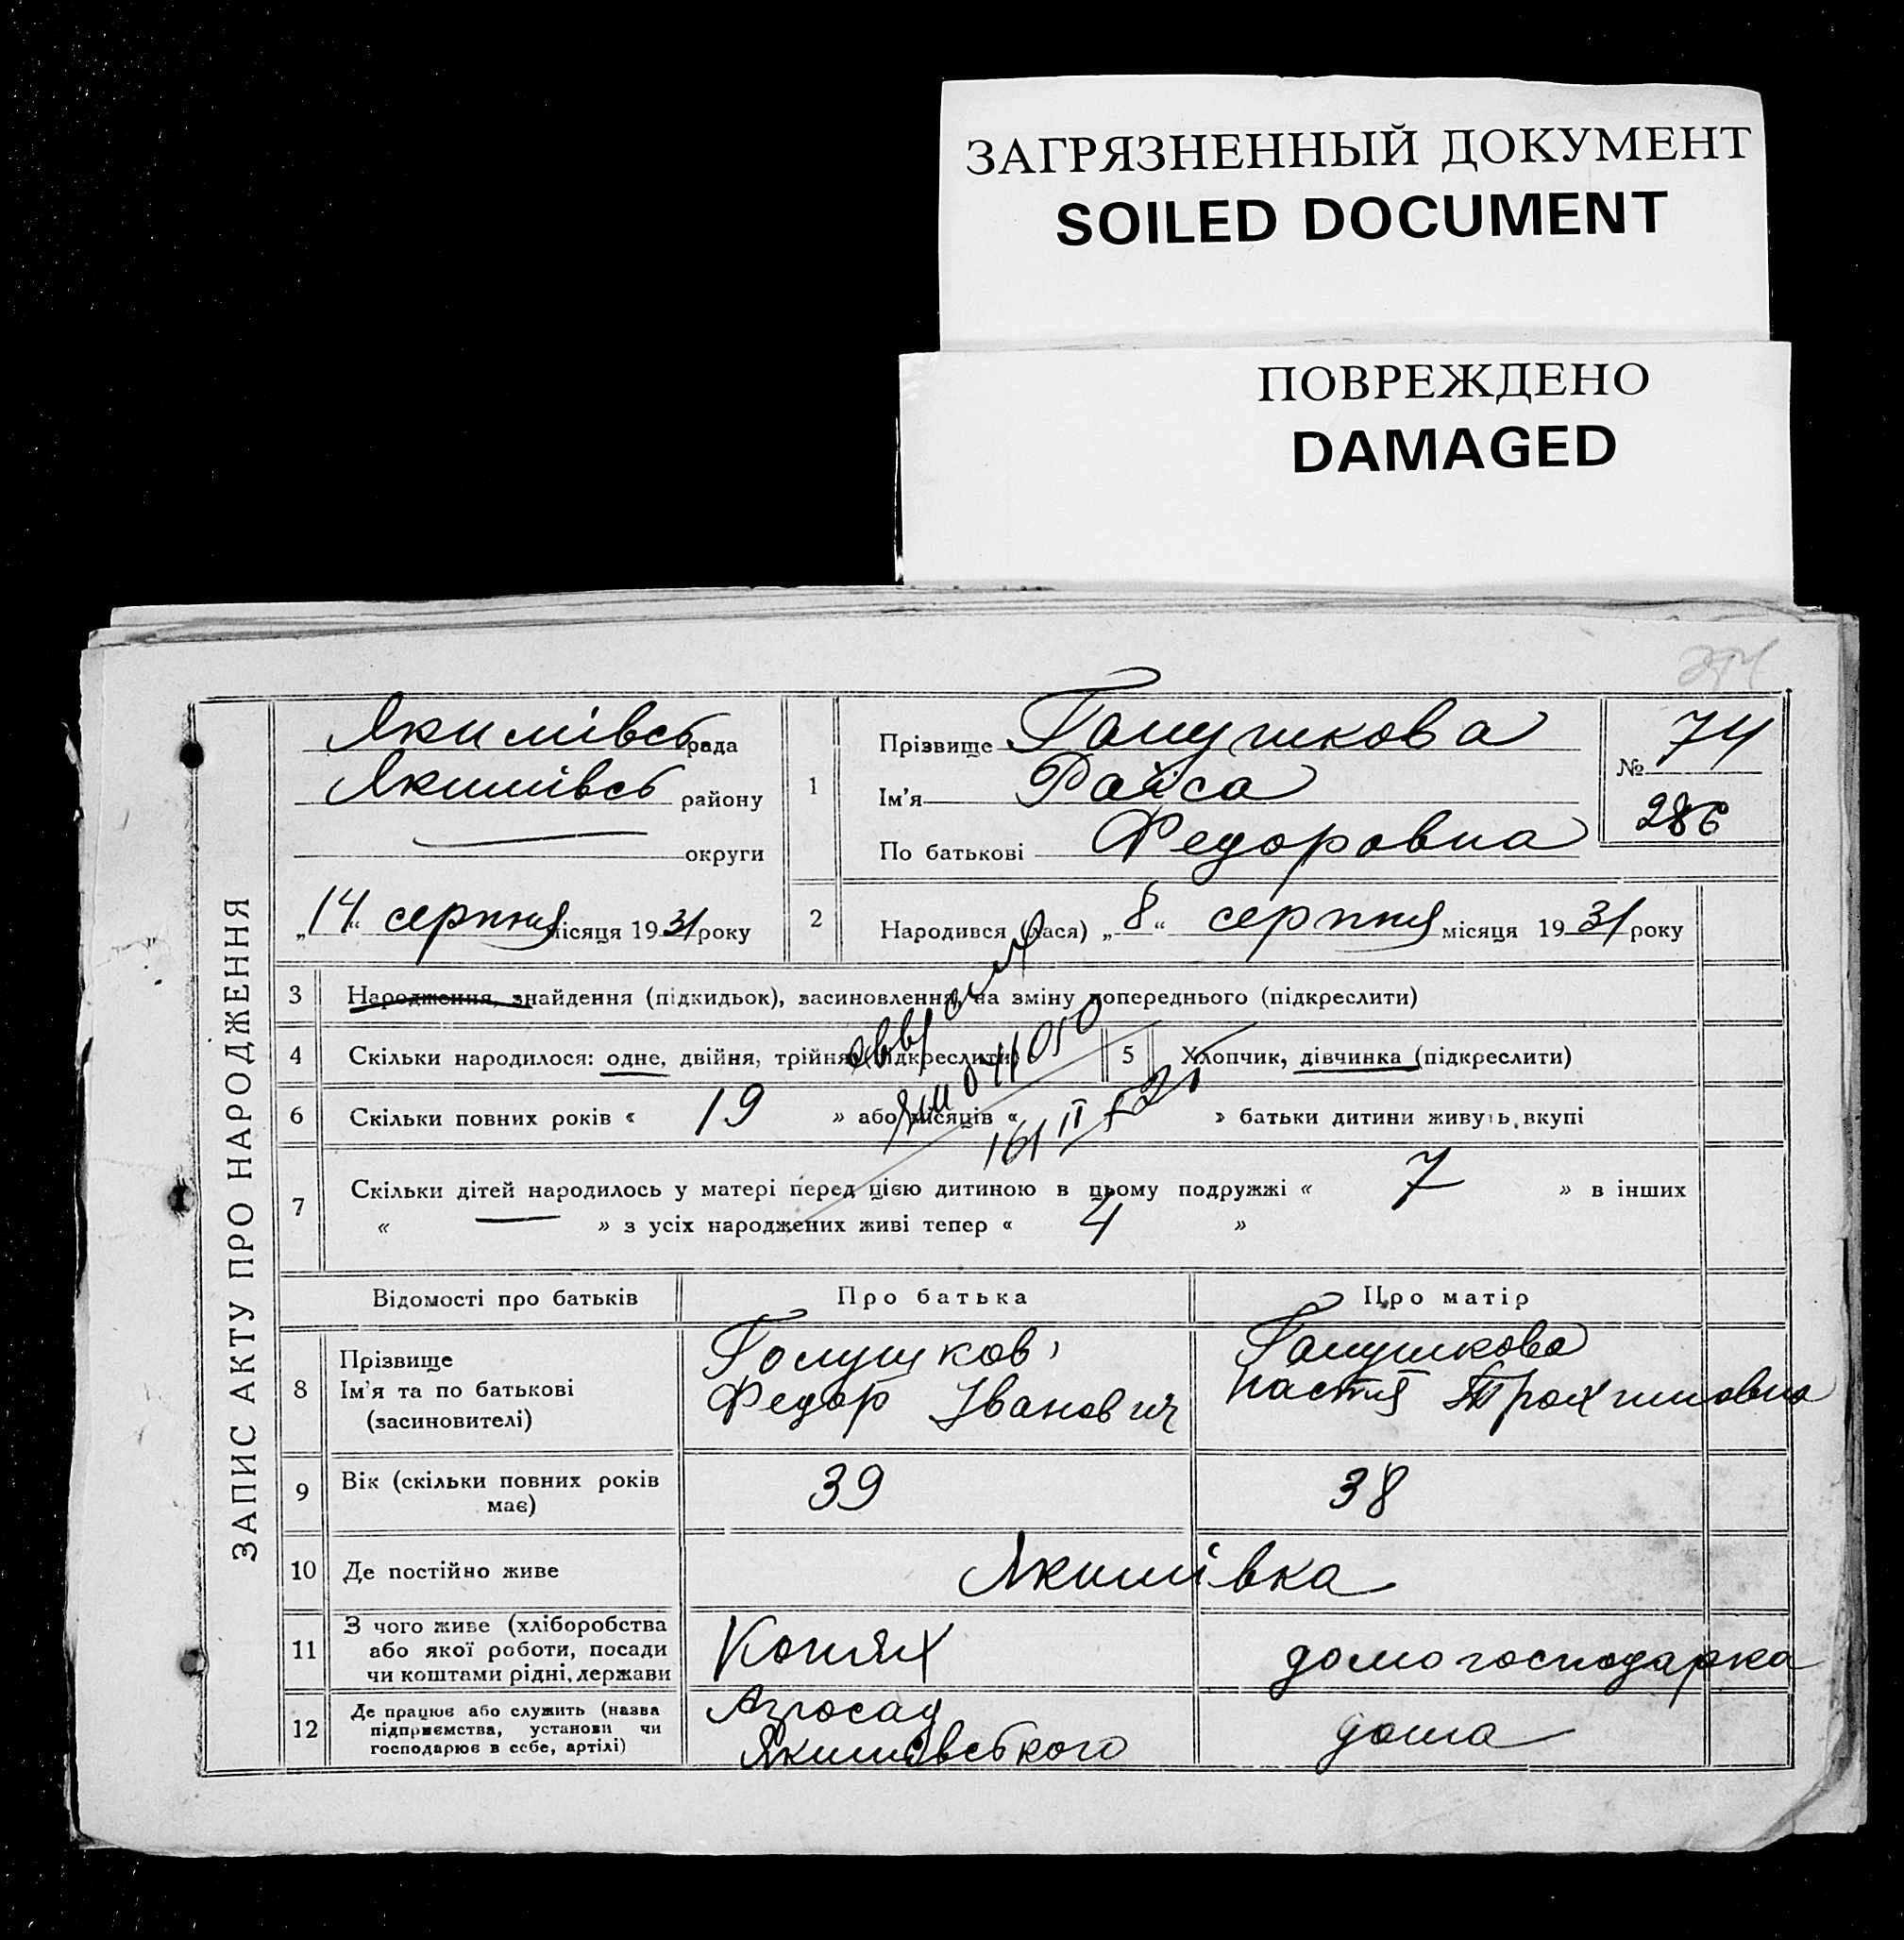 ЗАГРЯЗНЕННЫЙ ДОКУМЕНТ
SOILED DOCUMENT
ПОВРЕЖДЕНО
DAMAGED
ЗАПИС АКТУ ПРО НАРОДЖЕННЯ
Якимівсь рада
Якимівсь району
округи
„14“ серпня місяця 1931 року
1
Прізвище Галушкова
Ім'я Раїса
По батькові Федоровна
№ 74
286
2
Народився (лася) „8“ серпня місяця 1931 року
3
Народження, знайдення (підкидьок), засиновлення, на зміну попереднього (підкреслити)
4
Скільки народилося: одне, двійня, трійня (підкреслити)
5
Хлопчик, дівчинка (підкреслити)
6
Скільки повних років « 19 » або місяців « » батьки дитини живуть вкупі
7
Скільки дітей народилось у матері перед цією дитиною в цьому подружжі « 7 » в інших
« — » з усіх народжених живі тепер « 4 »
Відомості про батьків
Про батька
Про матір
8
Прізвище
Ім'я та по батькові
(засиновителі)
Голушков
Федор Іванович
Галушкова
Настя Трохимовна
9
Вік (скільки повних років
має)
39
38
10
Де постійно живе
Якимівка
11
З чого живе (хліборобства
або якої роботи, посади
чи коштами рідні, держави
Конюх
домогосподарка
12
Де працює або служить (назва
підприємства, установи чи
господарює в себе, артілі)
Якимівського
дома